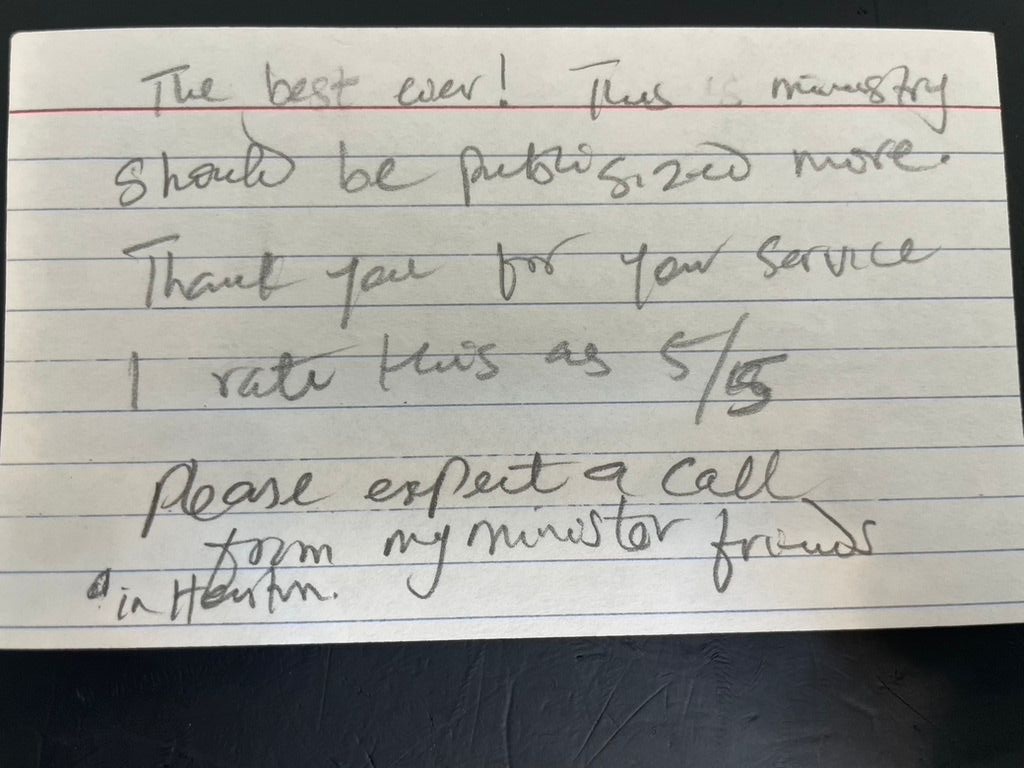 The best ever! This is ministry
should be publisized more.
Thank you for your service
I rate this as 5/5
please expect a call
from my minister friends
in Houston.